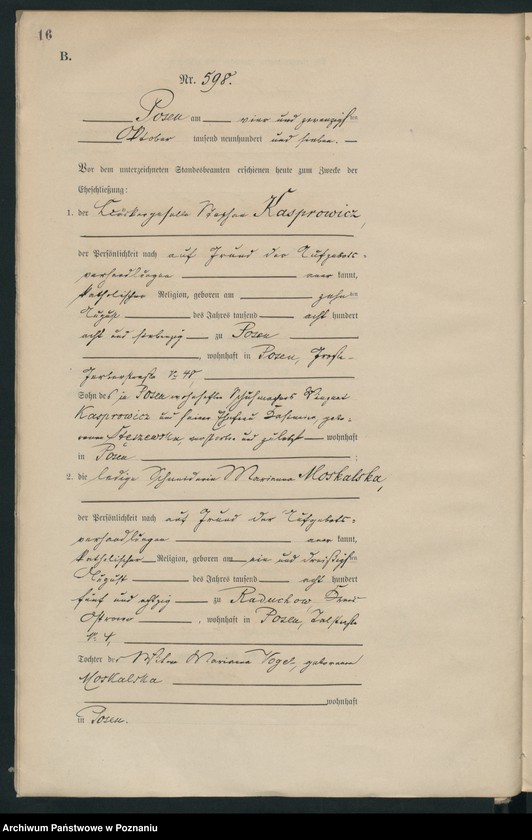 16
B.
Nr. 598.
Posen am vier und zwanzigsten
Oktober tausend neunhundert und sieben.
Vor dem unterzeichneten Standesbeamten erschienen heute zum Zwecke der
Eheschließung:
1. der Bäckergeselle Stephan Kasprowicz,
der Persönlichkeit nach auf Grund der Aufgebots-
verhandlungen anerkannt,
katholischer Religion, geboren am zehnten
August des Jahres tausend acht hundert
acht und siebenzig zu Posen
, wohnhaft in Posen, Große-
Gerberstraße No 48,
Sohn des in Posen wohnhaften Schuhmachers Vincent
Kasprowicz und seiner Ehefrau gebo-
renen Steszewska, verstorben und zuletzt wohnhaft
in Posen ;
2. die ledige Schneiderin Marianna Moskalska,
der Persönlichkeit nach auf Grund der Aufgebots-
verhandlungen anerkannt,
katholischer Religion, geboren am ein und dreißigsten
August des Jahres tausend acht hundert
fünf und achtzig zu Raduchow, Kreis
Ostrowo , wohnhaft in Posen, Talstraße
No 4,
Tochter der Witwe Marianna Vogel, geborenen
Moskalska
wohnhaft
in Posen.
Archiwum Państwowe w Poznaniu